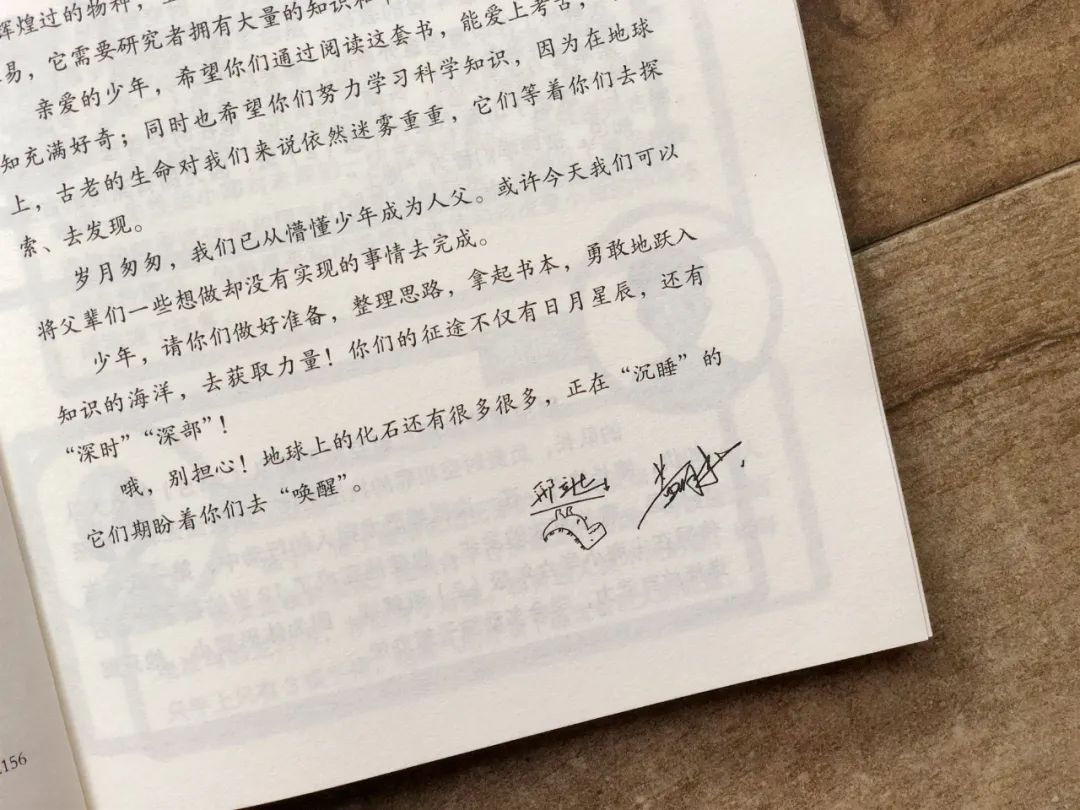 辉煌过的物种，
易，它需要研究者拥有大量的知识和
亲爱的少年，希望你们通过阅读这套书，能爱上考古，
知充满好奇；同时也希望你们努力学习科学知识，因为在地球
上，古老的生命对我们来说依然迷雾重重，它们等着你们去探
索、去发现。
岁月匆匆，我们已从懵懂少年成为人父。或许今天我们可以
将父辈们一些想做却没有实现的事情去完成。
少年，请你们做好准备，整理思路，拿起书本，勇敢地跃入
知识的海洋，去获取力量！你们的征途不仅有日月星辰，还有
“深时”“深部”！
哦，别担心！地球上的化石还有很多很多，正在“沉睡”的
它们期盼着你们去“唤醒”。
邢立达
156